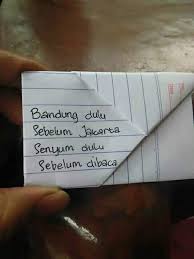 Bandung dulu
Sebelum Jakarta
Senyum dulu
Sebelum dibaca